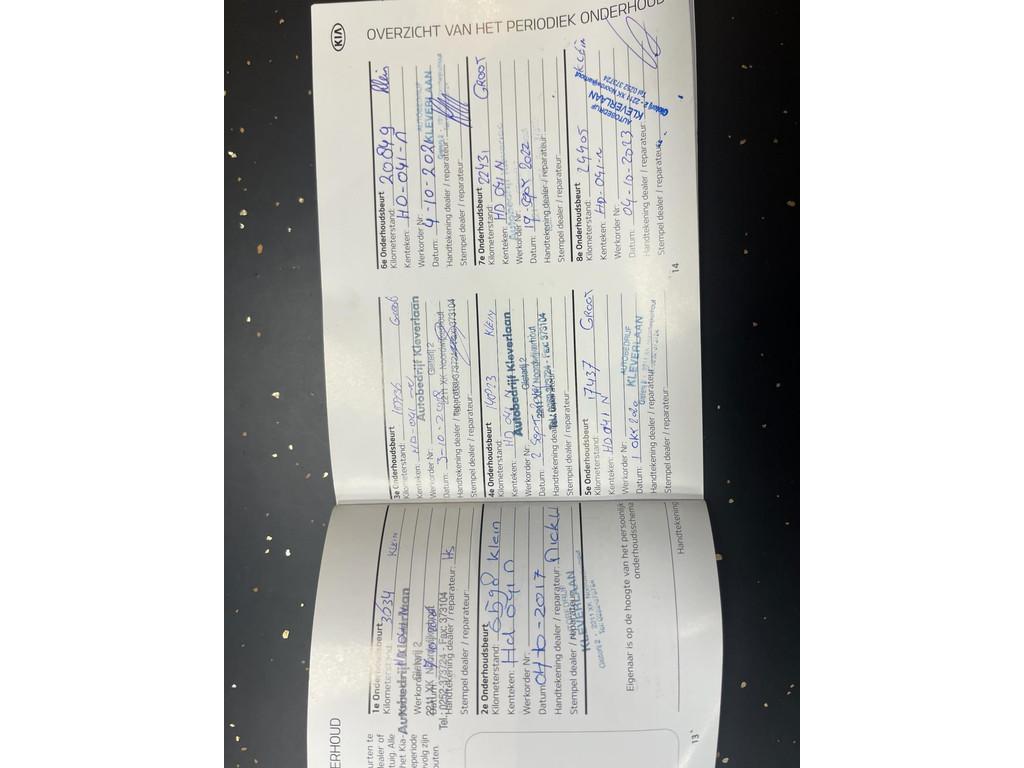 ERHOUD
urten te
dealer of
tuig. Alle
het Kia-
periode
volg zijn
outen.
1e Onderhoudsbeurt
Kilometerstand: 3034 KLEIN
Autobedrijf Kleverlaan
Gieterij 2
2211 XK Noordwijkerhout
Tel.: 0252-373724 - Fax: 373104
Handtekening dealer / reparateur: HS
Stempel dealer / reparateur:
2e Onderhoudsbeurt
Kilometerstand: Klein
Kenteken: Hd 041 n
Werkorder Nr:
Datum: 04-10-2017
Handtekening dealer / reparateur:
Stempel dealer / reparateur:
KLEVERLAAN
Eigenaar is op de hoogte van het persoonlijk
onderhoudsschema
Handtekening
13
KIA
OVERZICHT VAN HET PERIODIEK ONDERHOUD
3e Onderhoudsbeurt
Kilometerstand: GROOT
Kenteken: HD-041-N
Autobedrijf Kleverlaan
Werkorder Nr: Gieterij 2
Datum: 3-10-2018
2211 XK Noordwijkerhout
Handtekening dealer / reparateur:
Stempel dealer / reparateur:
4e Onderhoudsbeurt
Kilometerstand: KLEIN
Kenteken: HD 041 N
Autobedrijf Kleverlaan
Werkorder Nr: Gieterij 2
Datum: 2 Sept
2211 XK Noordwijkerhout
Handtekening dealer
Stempel dealer / reparateur:
5e Onderhoudsbeurt
Kilometerstand: 17437 GROOT
Kenteken: HD 041 N
Werkorder Nr: AUTOBEDRIJF
KLEVERLAAN
Datum: 1 okt 2020
Handtekening dealer / reparateur
Stempel dealer / reparateur:
6e Onderhoudsbeurt
Kilometerstand: 20849 Klein
Kenteken: HD-041-n
Werkorder Nr:
AUTOBEDRIJF
KLEVERLAAN
Datum: 4-10-2021
Handtekening dealer / reparateur:
Stempel dealer / reparateur:
7e Onderhoudsbeurt
Kilometerstand: 22431 GROOT
Kenteken: HD 041 N
Werkorder Nr:
Datum: 19-Sept 2022
Handtekening dealer / reparateur:
Stempel dealer / reparateur:
8e Onderhoudsbeurt
Kilometerstand: 24405 Klein
Kenteken: HD-041-n
Werkorder Nr:
Datum: 04-10-2023
Handtekening dealer / reparateur:
Stempel dealer / reparateur:
AUTOBEDRIJF
KLEVERLAAN
Gieterij 2 - 2211 XK Noordwijkerhout
Tel 0252 373724
14